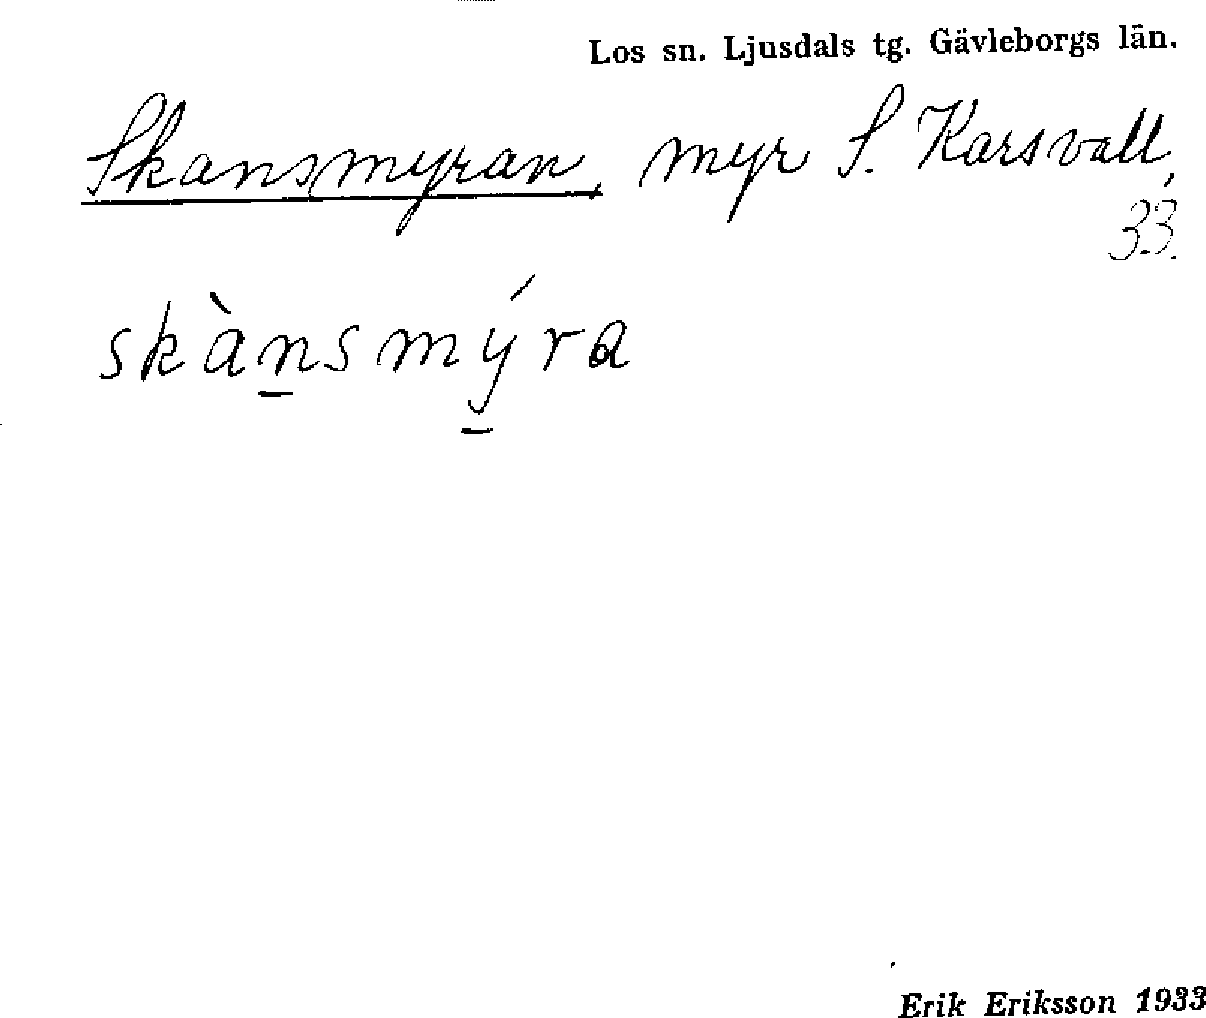 Los sn. Ljusdals tg. Gävleborgs län.
Skansmyran, myr S. Karsvall,
33.
skànsmýra
Erik Eriksson 1933